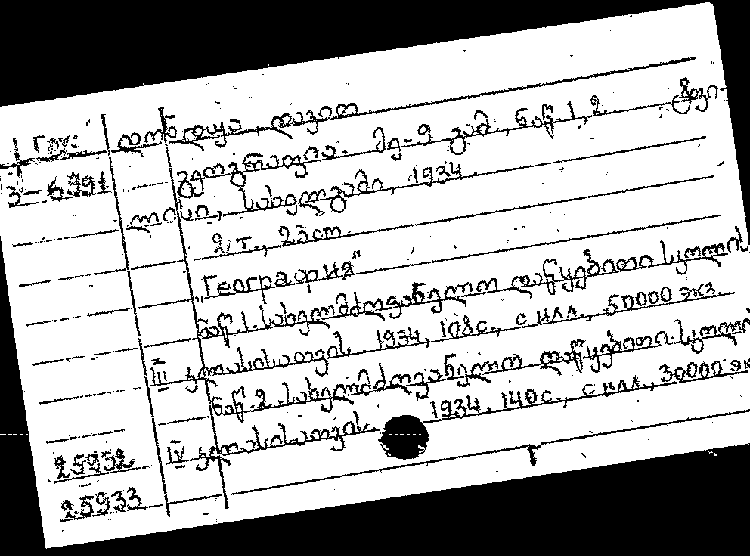 Груз. დონდუა, დავით
3-6991 გეოგრაფია. მე-9 გამ., ნაწ. 1, 2. ტფი-
ლისი, სახელგამი, 1934.
2 т., 23 cm.
"География"
ნაწ. 1. სახელმძღვანელო დაწყებითი სკოლის
III კლასისათვის. 1934, 108 с., с илл., 50000 экз.
ნაწ. 2. სახელმძღვანელო დაწყებითი სკოლის
IV კლასისათვის. 1934. 140 с., с илл., 30000 эк
25932
25933